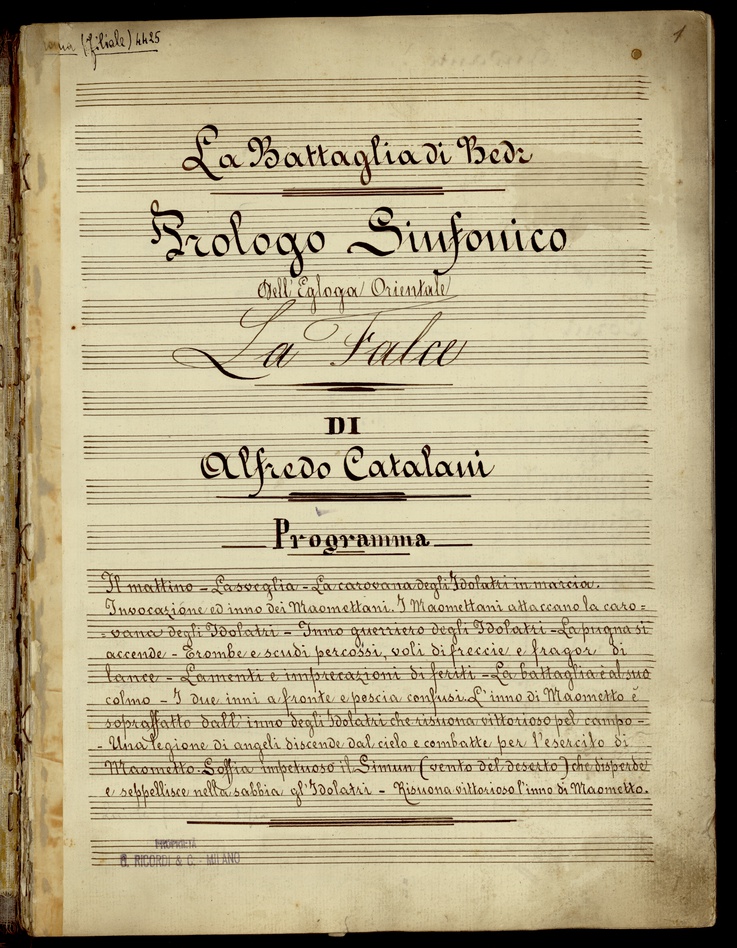 (filiale) 4425
1
La Battaglia di Bedr
Prologo Sinfonico
Dell'Egloga Orientale
La Falce
DI
Alfredo Catalani
Programma
Il mattino – La sveglia – La carovana degli Idolatri in marcia.
Invocazióne ed inno dei Maomettani. I Maomettani attaccano la caro=
=vana degli Idolatri – Inno guerriero degli Idolatri – La pugna si
accende – Trombe e scudi percossi, voli di freccie e fragor di
lance – Lamenti e imprecazioni di feriti – La battaglia è al suo
colmo – I due inni a fronte e poscia confusi. L'inno di Maometto è
sopraffatto dall'inno degli Idolatri che risuona vittorioso pel campo –
– Una legione di angeli discende dal cielo e combatte per l'esercito di
Maometto. Soffia impetuoso il Simun (vento del deserto) che disperde
e seppellisce nella sabbia gl'Idolatri – Risuona vittorioso l'inno di Maometto.
PROPRIETÀ
G. RICORDI & C. - MILANO